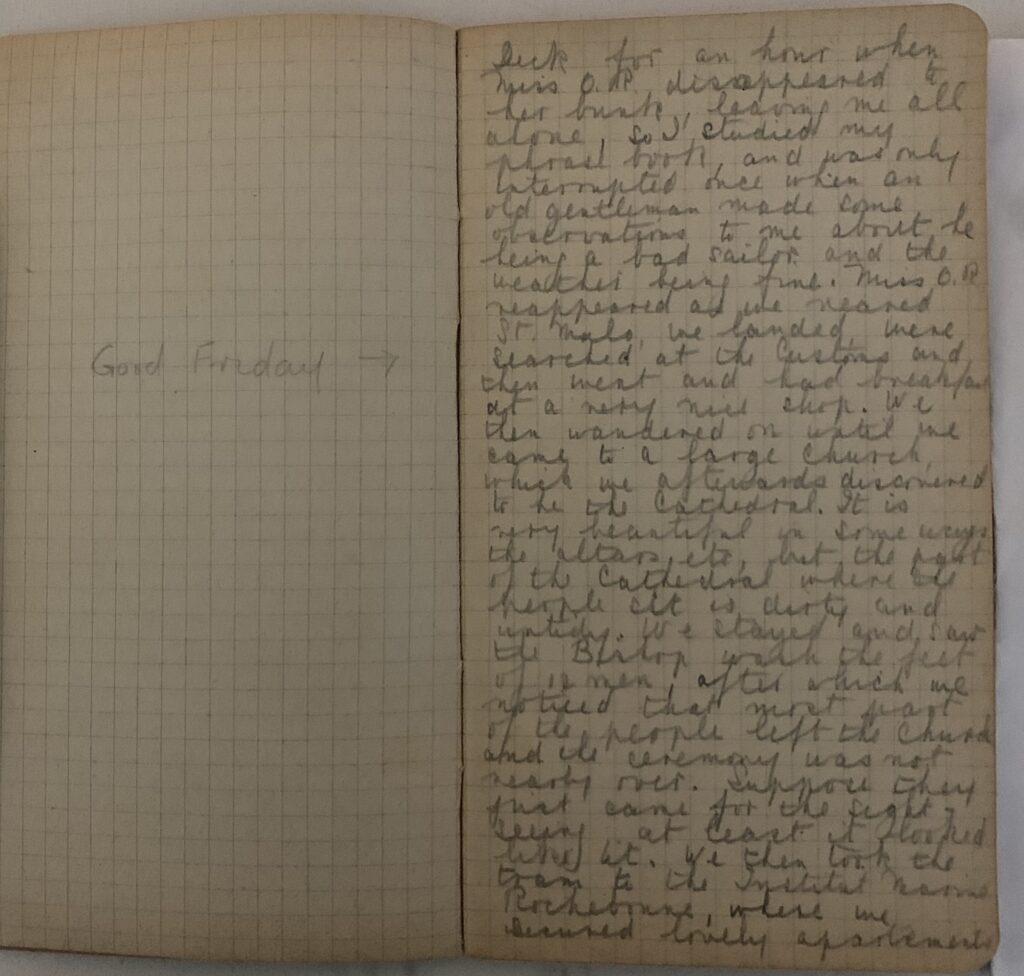 Good Friday →
Deck for an hour when
Miss O.R. disappeared to
her bunk, leaving me all
alone, so I studied my
phrase book, and was only
interrupted once when an
old gentleman made some
observations to me about he
being a bad sailor and the
weather being fine. Miss O.R
reappeared as we neared
St. Malo, we landed, were
searched at the Customs and
then went and had breakfast
at a very nice shop. We
then wandered on until we
came to a large church,
which we afterwards discovered
to be the Cathedral. It is
very beautiful in some ways
the altars, etc, but the part
of the Cathedral where the
people sit is dirty and
untidy. We stayed and saw
the Bishop wash the feet
of 12 men, after which we
noticed that most part
of the people left the church
and the ceremony was not
nearly over. Suppose they
just came for the sight-
seeing at least it looked
like it. We then took the
tram to the Institut
Rochebonne, where we
secured lovely apartments